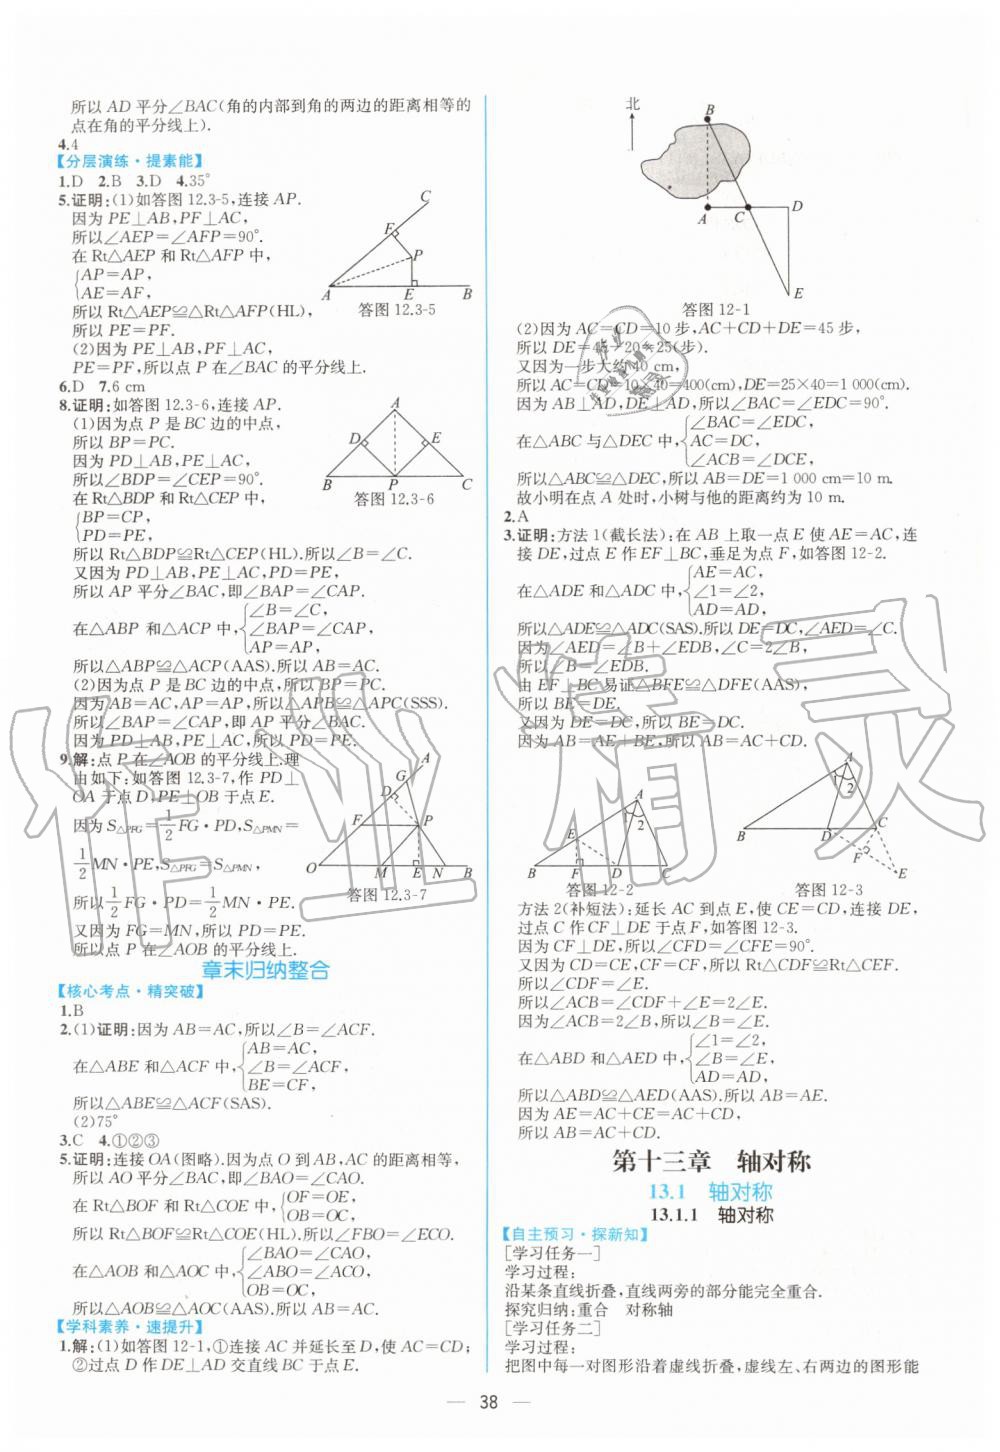 所以 AD 平分∠BAC(角的内部到角的两边的距离相等的
点在角的平分线上).
4.4
【分层演练·提素能】
1.D 2.B 3.D 4.35°
5.证明:(1)如答图 12.3-5,连接 AP.
因为 PE⊥AB,PF⊥AC,
所以∠AEP=∠AFP=90°.
在 Rt△AEP 和 Rt△AFP 中,
{AP=AP,
AE=AF,
所以 Rt△AEP≌△Rt△AFP(HL),
所以 PE=PF.
(2)因为 PE⊥AB,PF⊥AC,
PE=PF,所以点 P 在∠BAC 的平分线上.
C
F
P
A
E
B
答图 12.3-5
6.D 7.6 cm
8.证明:如答图 12.3-6,连接 AP.
(1)因为点 P 是 BC 边的中点,
所以 BP=PC.
因为 PD⊥AB,PE⊥AC,
所以∠BDP=∠CEP=90°.
在 Rt△BDP 和 Rt△CEP 中,
{BP=CP,
PD=PE,
所以 Rt△BDP≌Rt△CEP(HL).所以∠B=∠C.
又因为 PD⊥AB,PE⊥AC,PD=PE,
所以 AP 平分∠BAC,即∠BAP=∠CAP.
在△ABP 和△ACP 中,{∠B=∠C,
∠BAP=∠CAP,
AP=AP,
所以△ABP≌△ACP(AAS).所以 AB=AC.
(2)因为点 P 是 BC 边的中点,所以 BP=PC.
因为 AB=AC,AP=AP,所以△APB≌△APC(SSS).
所以∠BAP=∠CAP,即 AP 平分∠BAC.
因为 PD⊥AB,PE⊥AC,所以 PD=PE.
A
D
E
B
P
C
答图 12.3-6
9.解:点 P 在∠AOB 的平分线上.理
由如下:如答图 12.3-7,作 PD⊥
OA 于点 D,PE⊥OB 于点 E.
因为 S△PFG=1/2 FG·PD,S△PMN=
1/2 MN·PE,S△PFG=S△PMN,
所以 1/2 FG·PD=1/2 MN·PE.
又因为 FG=MN,所以 PD=PE.
所以点 P 在∠AOB 的平分线上.
A
G
D
F
P
O
M
E
N
B
答图 12.3-7
章末归纳整合
【核心考点·精突破】
1.B
2.(1)证明:因为 AB=AC,所以∠B=∠ACF.
在△ABE 和△ACF 中,{AB=AC,
∠B=∠ACF,
BE=CF,
所以△ABE≌△ACF(SAS).
(2)75°
3.C 4.①②③
5.证明:连接 OA(图略).因为点 O 到 AB,AC 的距离相等,
所以 AO 平分∠BAC,即∠BAO=∠CAO.
在 Rt△BOF 和 Rt△COE 中,{OF=OE,
OB=OC,
所以 Rt△BOF≌Rt△COE(HL).所以∠FBO=∠ECO.
在△AOB 和△AOC 中,{∠BAO=∠CAO,
∠ABO=∠ACO,
OB=OC,
所以△AOB≌△AOC(AAS).所以 AB=AC.
【学科素养·速提升】
1.解:(1)如答图 12-1,①连接 AC 并延长至 D,使 AC=CD;
②过点 D 作 DE⊥AD 交直线 BC 于点 E.
北
B
A
C
D
E
答图 12-1
(2)因为 AC=CD=10 步,AC+CD+DE=45 步,
所以 DE=45-20=25(步).
又因为一步大约 40 cm,
所以 AC=CD=10×40=400(cm),DE=25×40=1 000(cm).
因为 AB⊥AD,DE⊥AD,所以∠BAC=∠EDC=90°.
在△ABC 与△DEC 中,{∠BAC=∠EDC,
AC=DC,
∠ACB=∠DCE,
所以△ABC≌△DEC,所以 AB=DE=1 000 cm=10 m.
故小明在点 A 处时,小树与他的距离约为 10 m.
2.A
3.证明:方法 1(截长法):在 AB 上取一点 E 使 AE=AC,连
接 DE,过点 E 作 EF⊥BC,垂足为点 F,如答图 12-2.
在△ADE 和△ADC 中,{AE=AC,
∠1=∠2,
AD=AD,
所以△ADE≌△ADC(SAS).所以 DE=DC,∠AED=∠C.
因为∠AED=∠B+∠EDB,∠C=2∠B,
所以∠B=∠EDB.
由 EF⊥BC 易证△BFE≌△DFE(AAS),
所以 BE=DE.
又因为 DE=DC,所以 BE=DC.
因为 AB=AE+BE,所以 AB=AC+CD.
A
1
2
E
B
F
D
C
答图 12-2
A
1
2
B
D
C
F
E
答图 12-3
方法 2(补短法):延长 AC 到点 E,使 CE=CD,连接 DE,
过点 C 作 CF⊥DE 于点 F,如答图 12-3.
因为 CF⊥DE,所以∠CFD=∠CFE=90°.
因为 CD=CE,CF=CF,所以 Rt△CDF≌Rt△CEF.
所以∠CDF=∠E.
所以∠ACB=∠CDF+∠E=2∠E.
因为∠ACB=2∠B,所以∠B=∠E.
在△ABD 和△AED 中,{∠1=∠2,
∠B=∠E,
AD=AD,
所以△ABD≌△AED(AAS).所以 AB=AE.
因为 AE=AC+CE=AC+CD,
所以 AB=AC+CD.
第十三章 轴对称
13.1 轴对称
13.1.1 轴对称
【自主预习·探新知】
[学习任务一]
学习过程:
沿某条直线折叠,直线两旁的部分能完全重合.
探究归纳:重合 对称轴
[学习任务二]
学习过程:
把图中每一对图形沿着虚线折叠,虚线左、右两边的图形能
— 38 —
作业精灵